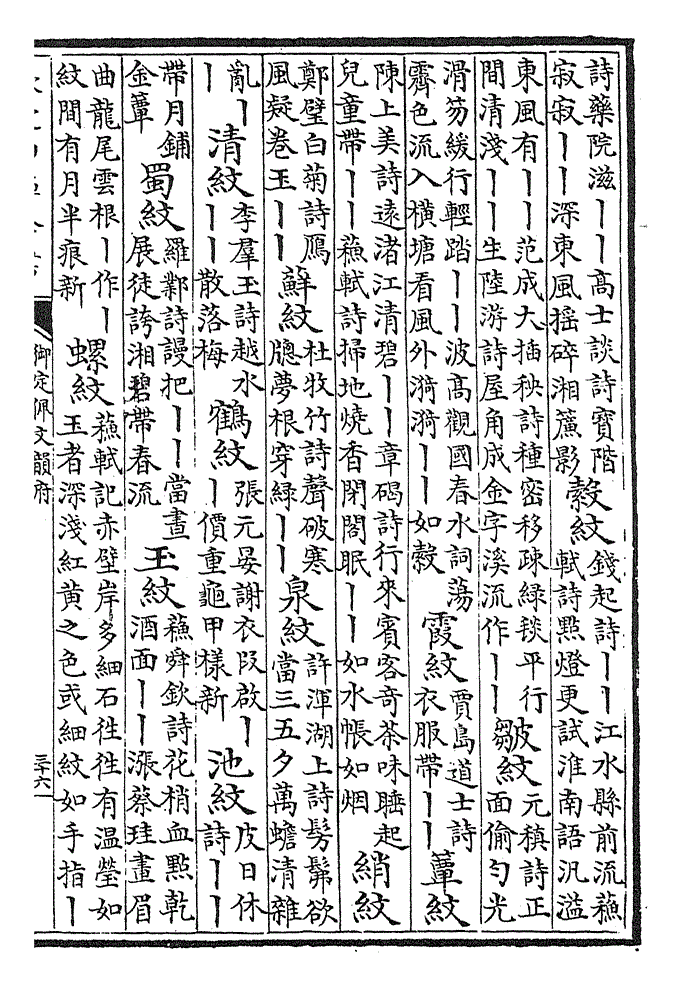 詩藥院滋｜｜高士談詩寶階
寂寂｜｜深東風搖碎湘簾影
縠紋
錢起詩｜｜江水縣前流蘇
軾詩點燈更試淮南語汎溢
東風有｜｜范成大插秧詩種密移疎綠毯平行
間清淺｜｜生陸游詩屋角成金字溪流作｜｜
皺紋
元稹詩正
面偷勻光
滑芴緩行輕踏｜｜波高觀國春水詞蕩
霽色流入橫塘看風外漪漪｜｜如縠
霞紋
賈島道士詩
衣服帶｜｜
簟紋
陳上美詩遠渚江清碧｜｜章碣詩行來賓客奇茶味睡起
兒童帶｜｜蘇軾詩掃地燒香閉閣眠｜｜如水帳如烟
綃紋
鄭璧白菊詩鴈
風疑卷玉｜｜
蘚紋
杜牧竹詩聲破寒
牕夢根穿綠｜｜
泉紋
許渾湖上詩髣髴欲
當三五夕萬蟾清雜
亂｜
｜
清紋
李羣玉詩越水
｜｜散落梅
鶴紋
張元晏謝衣段啟｜
｜價重龜甲樣新
池紋
皮日休
詩｜｜
帶月鋪
金簟
蜀紋
羅鄴詩謾把｜｜當晝
展徒誇湘碧帶春流
玉紋
蘇舜欽詩花梢血點乾
酒面｜｜漲蔡珪畫眉
曲龍尾雲根｜作｜
紋間有月半痕新
螺紋
蘇軾記赤壁岸多細石往往有温瑩如
玉者深淺紅黃之色或細紋如手指｜
御定佩文韻府
三十六